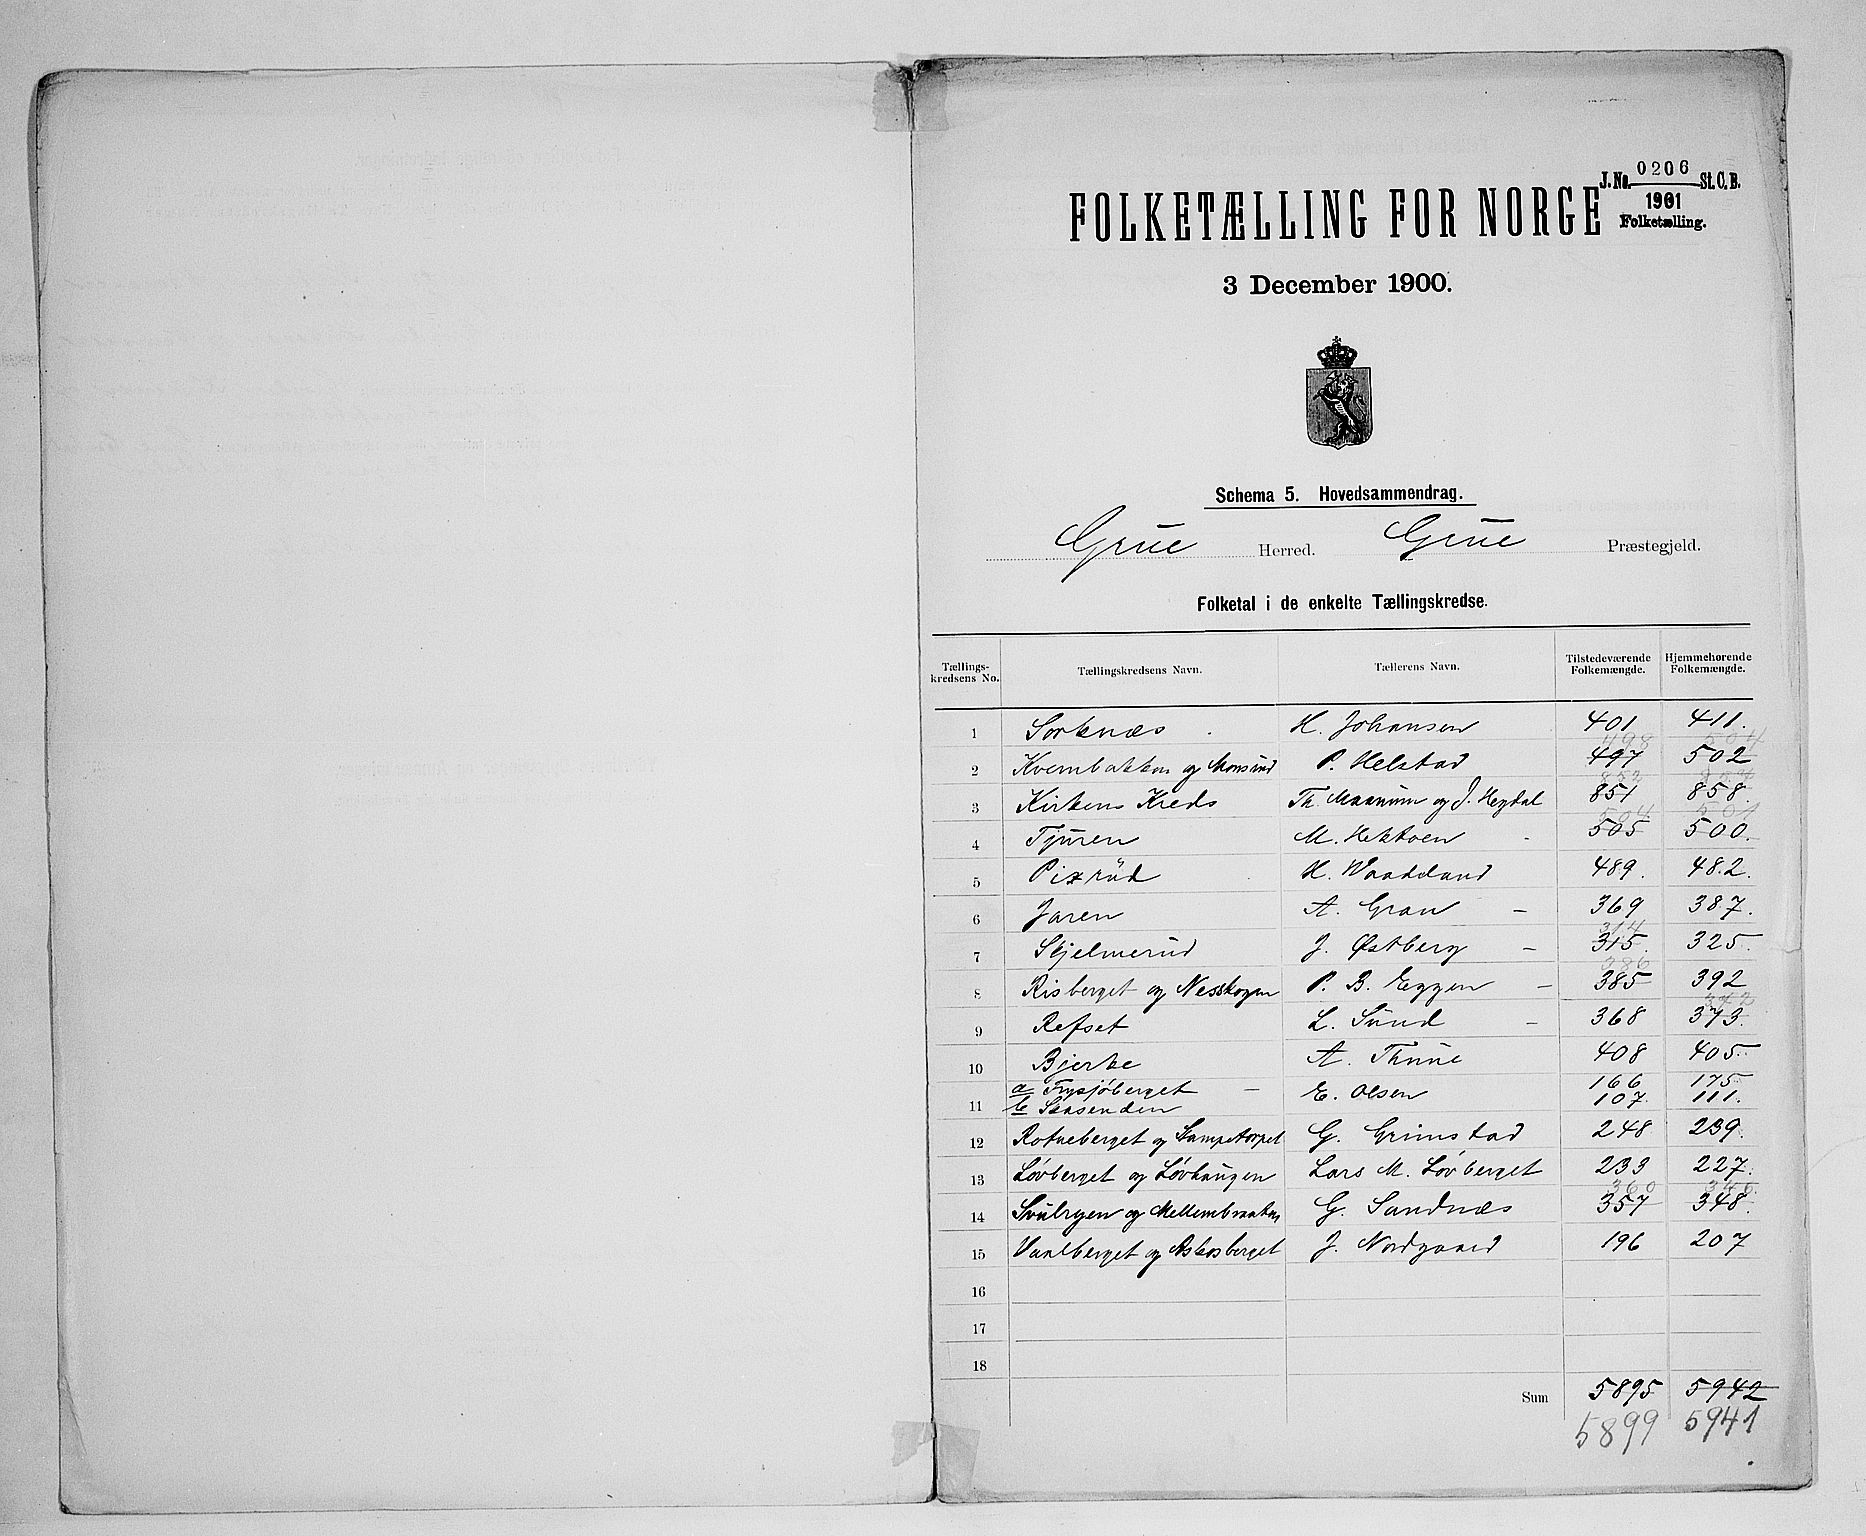 J. No. 0206 St. C. B.
1901
Folketælling.
FOLKETÆLLING FOR NORGE
3 December 1900.
Schema 5. Hovedsammendrag.
Grue Herred. Grue Præstegjeld.
Folketal i de enkelte Tællingskredse.
Tællings-kredsens No. Tællingskredsens Navn. Tællerens Navn. Tilstedeværende Folkemængde. Hjemmehørende Folkemængde.
1 Sorknæs H. Johansen 401 411.
498 504
2 Kvernbakken og Monsrud P. Helstad 497 502
852
3 Kirkens Kreds Th. Maanum og J. Hegdal 851 858.
504 501
4 Tjuren M. Hektoen 505 500.
5 Pixrud H. Waadeland 489. 482.
6 Jaren A. Gran – 369 387.
314
7 Skjelmerud J. Østberg – 315. 325.
386
8 Risberget og Nesskogen P. B. Eggen – 385 392
372
9 Refset L. Sund – 368 373.
10 Bjerke A. Thune 408 405.
11 a Frysjøberget – E. Olsen 166 175
b Skasenden 107. 111.
12 Rotneberget og G. Grimstad 248 239.
13 Løvberget og Løvhaugen Lars M. Løvberget 233 227.
360 346
14 og G. Sandnæs 357 348.
15 og J. Nordgaard 196 207
16
17
18
Sum 5895 5942
5899 5941